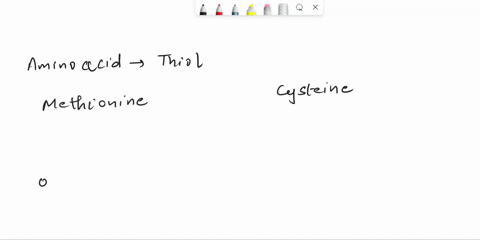 Amino acid → Thiol
Methionine
Cysteine
O